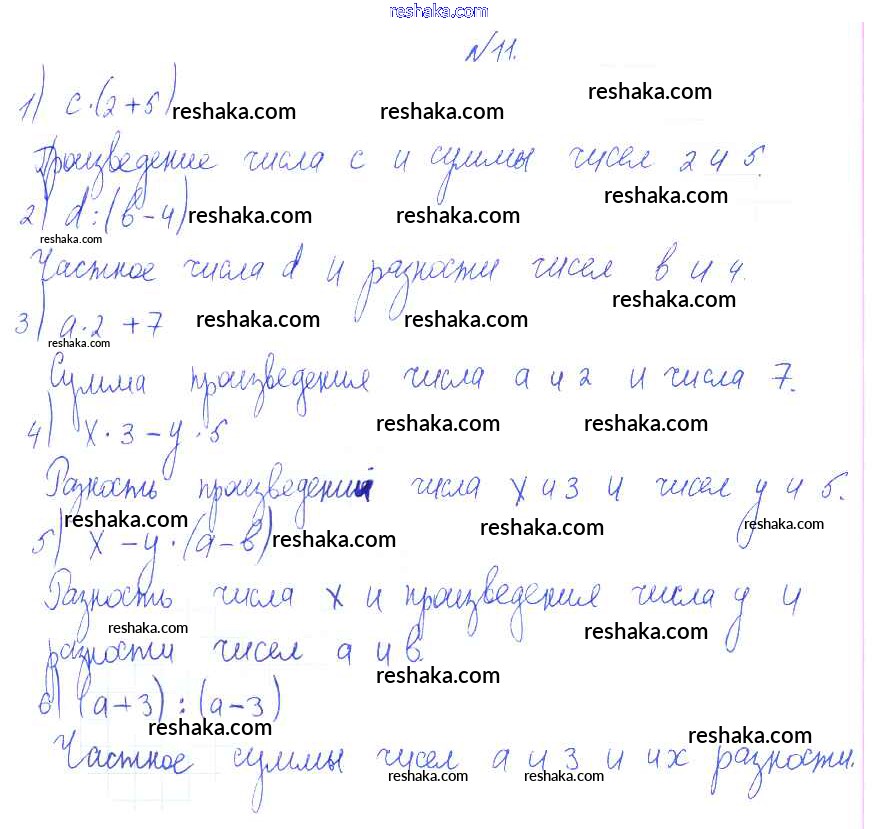 reshaka.com
№11.
1) c·(2+5) reshaka.com reshaka.com reshaka.com
Произведение числа c и суммы чисел 2 и 5.
2) d:(b-4) reshaka.com reshaka.com reshaka.com
reshaka.com
Частное числа d и разности чисел b и 4.
3) a·2+7 reshaka.com reshaka.com reshaka.com
reshaka.com
Сумма произведения числа a и 2 и числа 7.
4) x·3-y·5 reshaka.com reshaka.com
Разность произведений числа x и 3 и чисел y и 5.
reshaka.com reshaka.com reshaka.com
5) x-y·(a-b) reshaka.com
Разность числа x и произведения числа y и
reshaka.com reshaka.com
разности чисел a и b.
reshaka.com
6) (a+3):(a-3)
reshaka.com reshaka.com
Частное суммы чисел a и 3 и их разности.
reshaka.com reshaka.com